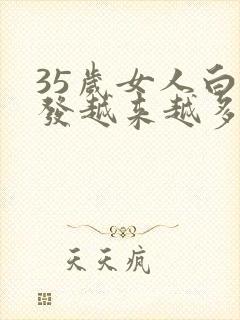 35歲女人白
發越来越多
天天疯